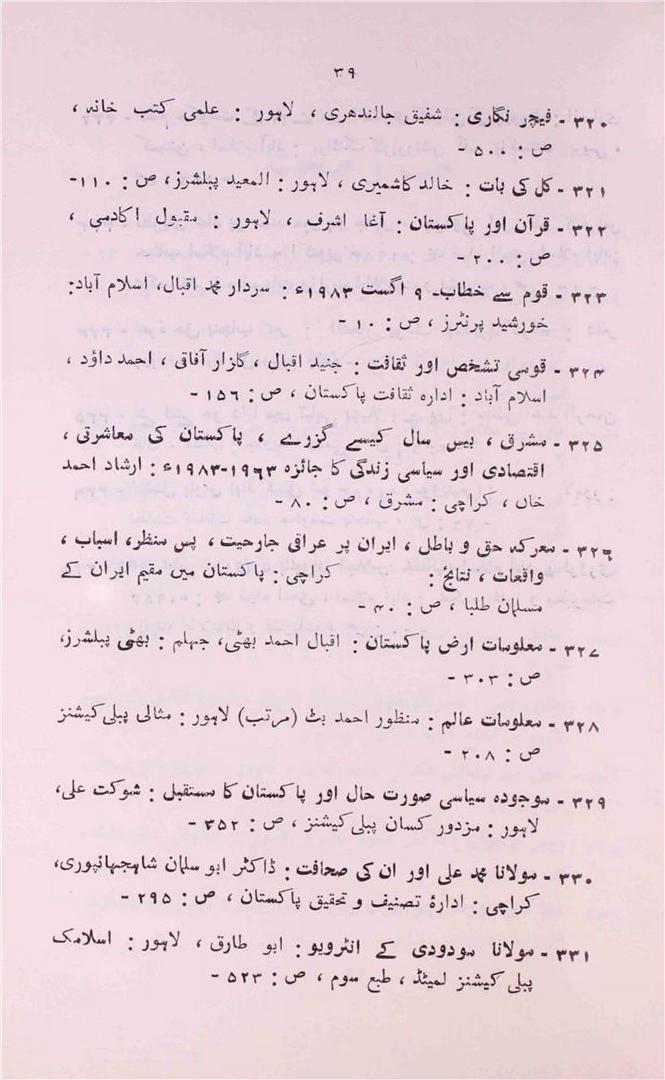 ۳۹
۳۲۰ - فیچر نگاری : شفیق جالندھری ، لاہور : علمی کتب خانہ ،
ص : ۵۰۰ -
۳۲۱ - کل کی بات : خالد کاشمیری ، لاہور : المعید پبلشرز، ص : ۱۱۰-
۳۲۲ - قرآن اور پاکستان : آغا اشرف ، لاہور : مقبول اکادمی ،
ص : ۲۰۰ -
۳۲۳ - قوم سے خطاب- ۹ اگست ۱۹۸۳ء : سردار محمد اقبال، اسلام آباد:
خورشید پرنٹرز ، ص : ۱۰ -
۳۲۴ - قومی تشخص اور ثقافت : جنید اقبال ، گلزار آفاقی ، احمد داؤد ،
اسلام آباد : ادارہ ثقافت پاکستان ، ص : ۱۵۶ -
۳۲۵ - مشرق ، بیس سال کیسے گزرے ، پاکستان کی معاشرتی ،
اقتصادی اور سیاسی زندگی کا جائزہ ۱۹۶۳-۱۹۸۳ء : ارشاد احمد
خاں ، کراچی : مشرق ، ص : ۸۰ -
۳۲۶ - معرکہ حق و باطل ، ایران پر عراقی جارحیت ، پس منظر، اسباب ،
واقعات ، نتائج : کراچی : پاکستان میں مقیم ایران کے
مسلمان طلبا ، ص : ۴۰ -
۳۲۷ - معلومات ارض پاکستان : اقبال احمد بھٹی، جہلم : بھٹی پبلشرز،
ص : ۳۰۳ -
۳۲۸ - معلومات عالم : منظور احمد بٹ (مرتب) لاہور : مثالی پبلی کیشنز
ص : ۲۰۸ -
۳۲۹ - موجودہ سیاسی صورت حال اور پاکستان کا مستقبل : شوکت علی،
لاہور : مزدور کسان پبلی کیشنز ، ص : ۳۵۲ -
۳۳۰ - مولانا محمد علی اور ان کی صحافت : ڈاکٹر ابو سلمان شاہجہانپوری،
کراچی : ادارۂ تصنیف و تحقیق پاکستان ، ص : ۲۹۵ -
۳۳۱ - مولانا مودودی کے انٹرویو : ابو طارق ، لاہور : اسلامک
پبلی کیشنز لمیٹڈ ، طبع سوم ، ص : ۵۲۳ -